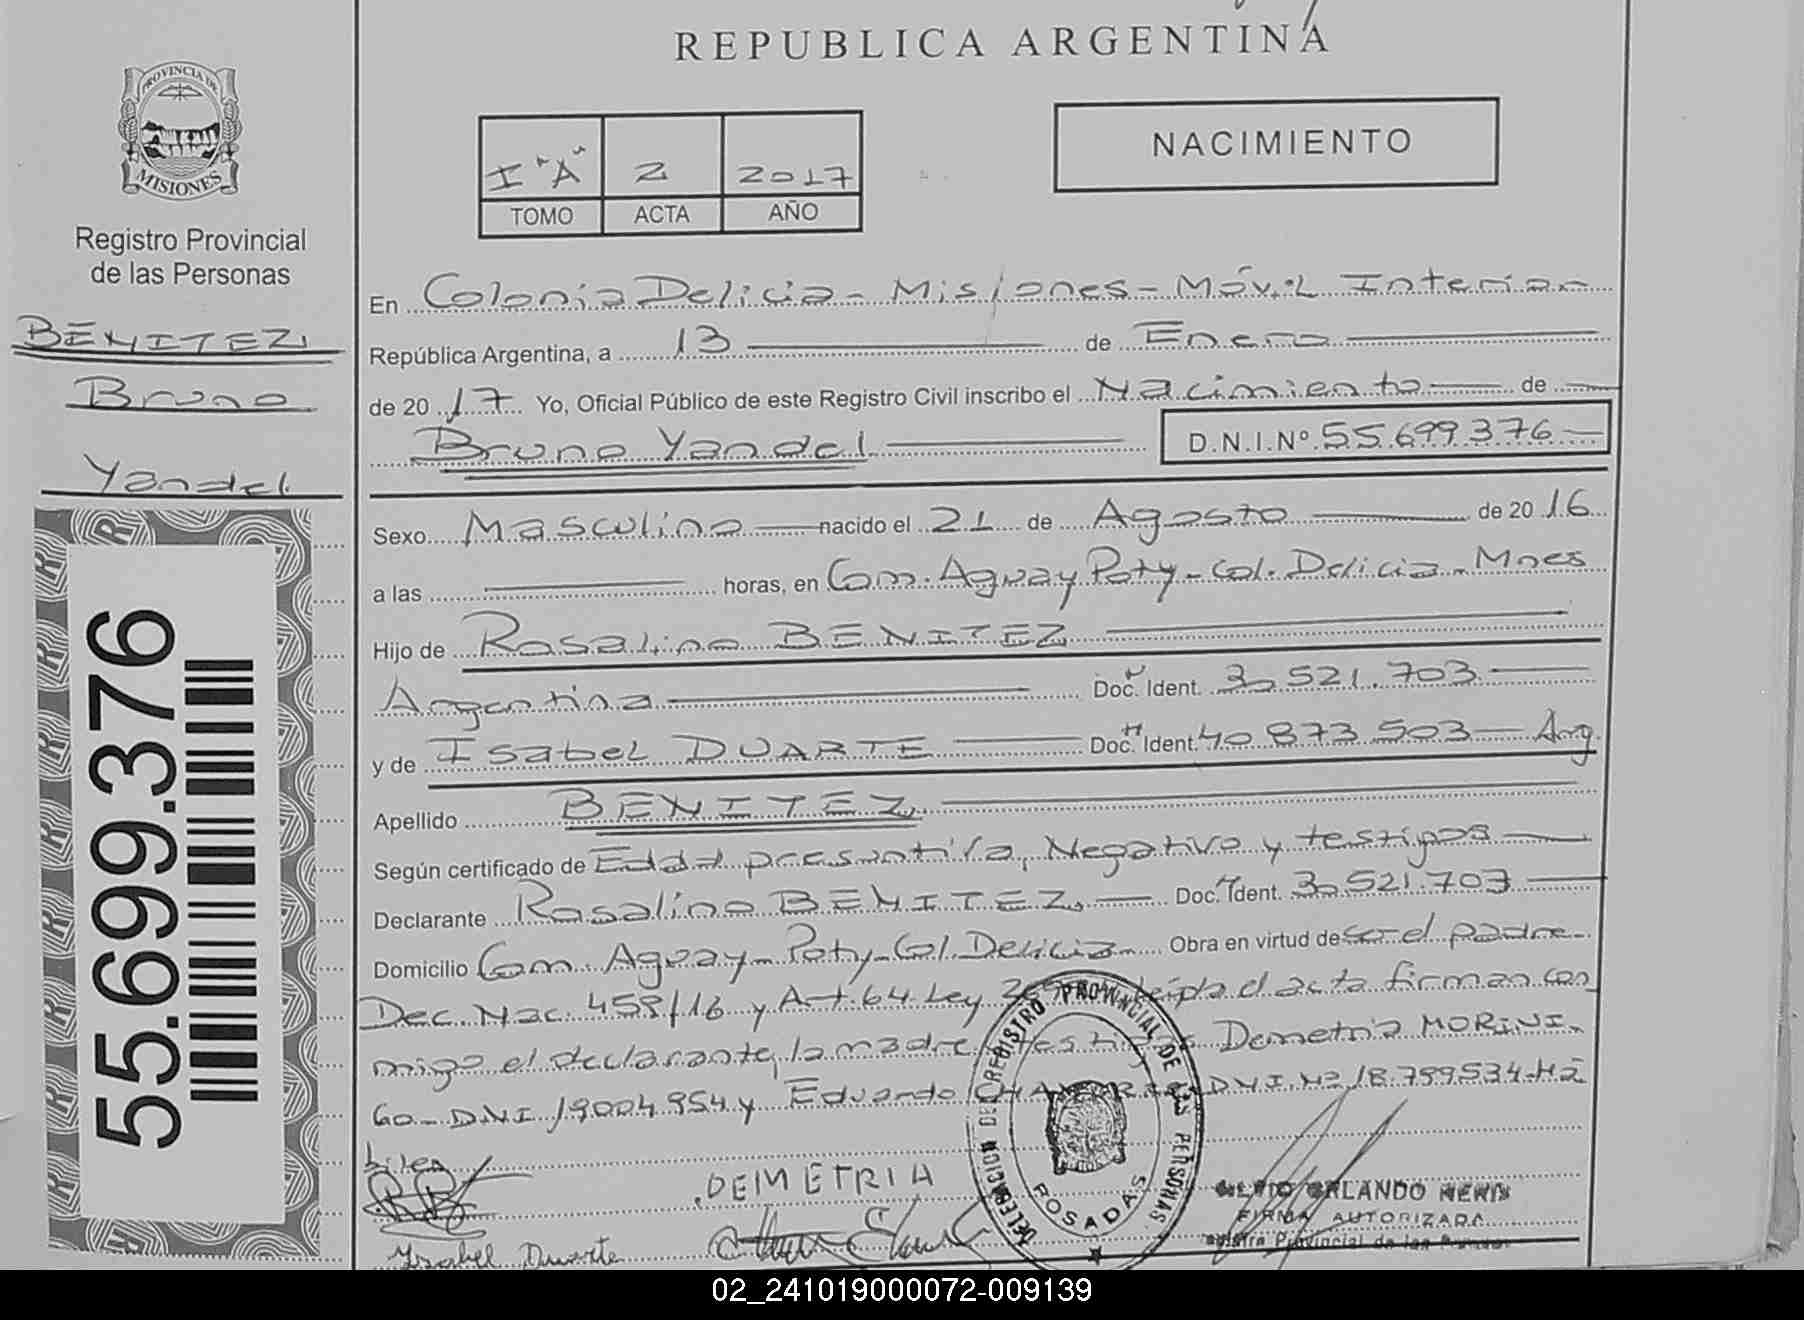 REPUBLICA ARGENTINA
PROVINCIA DE
MISIONES
Registro Provincial
de las Personas
BENITEZ,
Bruno
Yandel
55.699.376
I "A" 2 2017
TOMO ACTA AÑO
NACIMIENTO
En Colonia Delicia - Misiones - Móvil Interior
República Argentina, a 13 de Enero
de 2017 Yo, Oficial Público de este Registro Civil inscribo el Nacimiento de
Bruno Yandel D.N.I.Nº 55.699.376
Sexo Masculino nacido el 21 de Agosto de 2016
a las horas, en Com. Aguay Poty - Col. Delicia - Mnes
Hijo de Rosalino BENITEZ
Argentina Doc. Ident. 30.521.703
y de Isabel DUARTE Doc. Ident. 40 873 503 Arg.
Apellido BENITEZ
Según certificado de Edad presuntiva, Negativo y testigos
Declarante Rosalino BENITEZ, Doc. Ident. 30.521.703
Domicilio Com. Aguay - Poty - Col. Delicia Obra en virtud de ser el padre
Dec. Nac. 459/16 y Art. 64 Ley leída el acta firman con
migo el declarante, la madre, testigos Demetria MORINI-
Go - DNI 19004954 y Eduardo DNI Nº 18.799534-Há
biles
DEMETRIA
Ysabel Duarte
DELEGACION DEL REGISTRO PROVINCIAL DE LAS PERSONAS
POSADAS
ORLANDO NERIS
FIRMA AUTORIZADA
Registro Provincial de las Personas
02_241019000072-009139